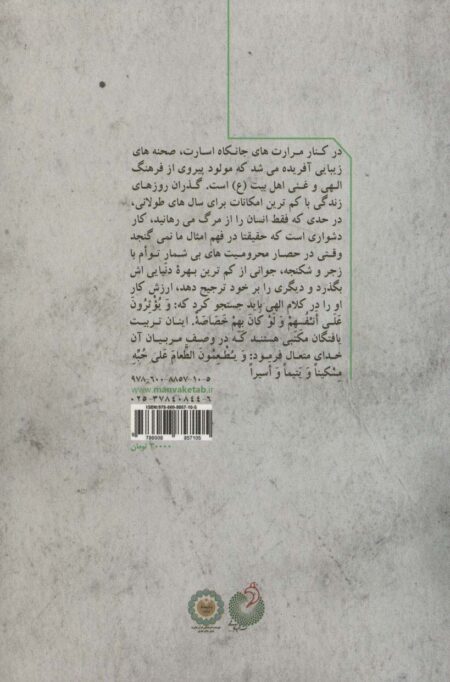 در کنار مرارت های جانکاه اسارت، صحنه های
زیبایی آفریده می شد که مولود پیروی از فرهنگ
الهی و غنی اهل بیت (ع) است. گذران روزهای
زندگی با کم ترین امکانات برای سال های طولانی،
در حدی که فقط انسان را از مرگ می رهانید، کار
دشواری است که حقیقتا در فهم امثال ما نمی گنجد
وقتی در حصار محرومیت های بی شمار توأم با
زجر و شکنجه، جوانی از کم ترین بهرهٔ دنیایی اش
بگذرد و دیگری را بر خود ترجیح دهد، ارزش کار
او را در کلام الهی باید جستجو کرد که: وَ یُؤثِرُونَ
عَلَی أَنفُسِهِمْ وَ لَوْ کَانَ بِهِمْ خَصَاصَةٌ. اینان تربیت
یافتگان مکتبی هستند که در وصف مربیان آن
خدای متعال فرمود: وَ یُطْعِمُونَ الطَّعامَ عَلی حُبِّهِ
مِسْکیناً وَ یَتیماً وَ أَسیراً
۹۷۸-۶۰۰-۸۸۵۷-۱۰-۵
www.manvaketab.ir
۰۲۵-۳۷۸۴۰۸۴۴-۶
ISBN:978-600-8857-10-5
9786008 857105
۲۰۰۰۰ تومان